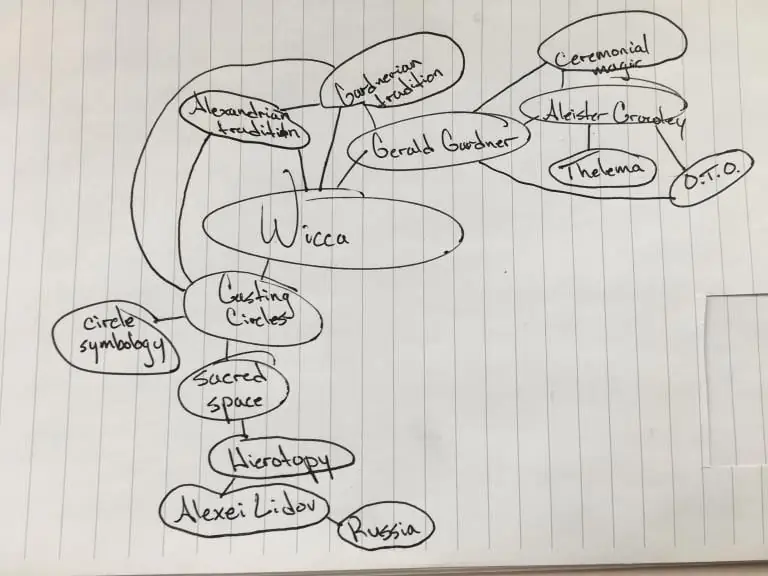 Ceremonial
magic
Gardnerian
tradition
Alexandrian
tradition
Aleister Crowley
Gerald Gardner
Thelema
O.T.O.
Wicca
Casting
Circles
circle
symbology
sacred
space
Hierotopy
Alexei Lidov
Russia